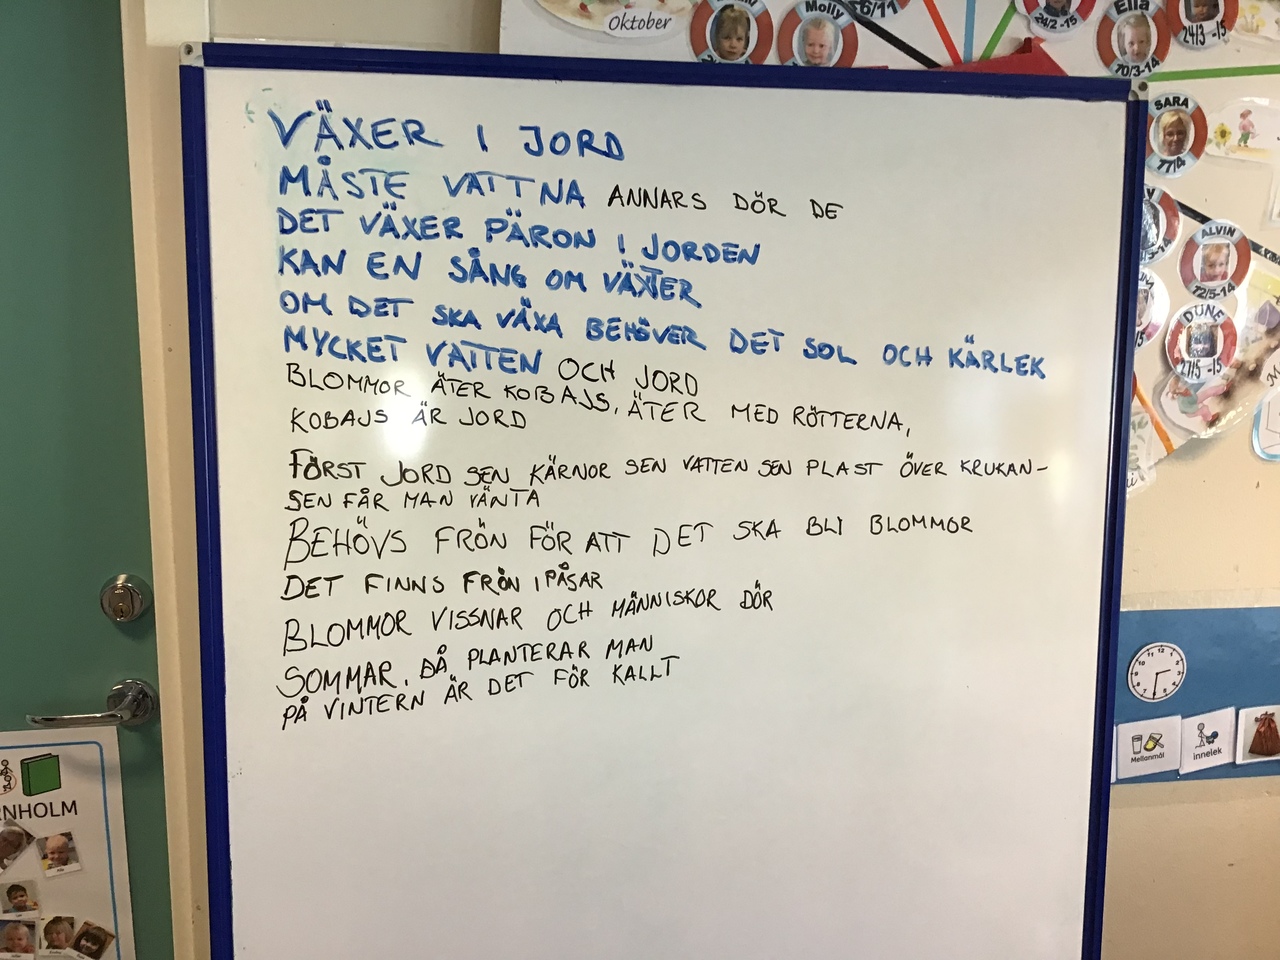 Oktober
Molly
26/11
24/2 -15
Ella
70/3-14
24/3 -15
VÄXER I JORD
MÅSTE VATTNA ANNARS DÖR DE
DET VÄXER PÄRON I JORDEN
KAN EN SÅNG OM VÄXTER
OM DET SKA VÄXA BEHÖVER DET SOL OCH KÄRLEK
MYCKET VATTEN OCH JORD
BLOMMOR ÄTER KOBAJS, ÄTER MED RÖTTERNA,
KOBAJS ÄR JORD
FÖRST JORD SEN KÄRNOR SEN VATTEN SEN PLAST ÖVER KRUKAN-
SEN FÅR MAN VÄNTA
BEHÖVS FRÖN FÖR ATT DET SKA BLI BLOMMOR
DET FINNS FRÖN I PÅSAR
BLOMMOR VISSNAR OCH MÄNNISKOR DÖR
SOMMAR, DÅ PLANTERAR MAN
PÅ VINTERN ÄR DET FÖR KALLT
SARA
77/4
ALVIN
12/5-14
DUNE
27/5 -15
Mellanmål
innelek
RNHOLM